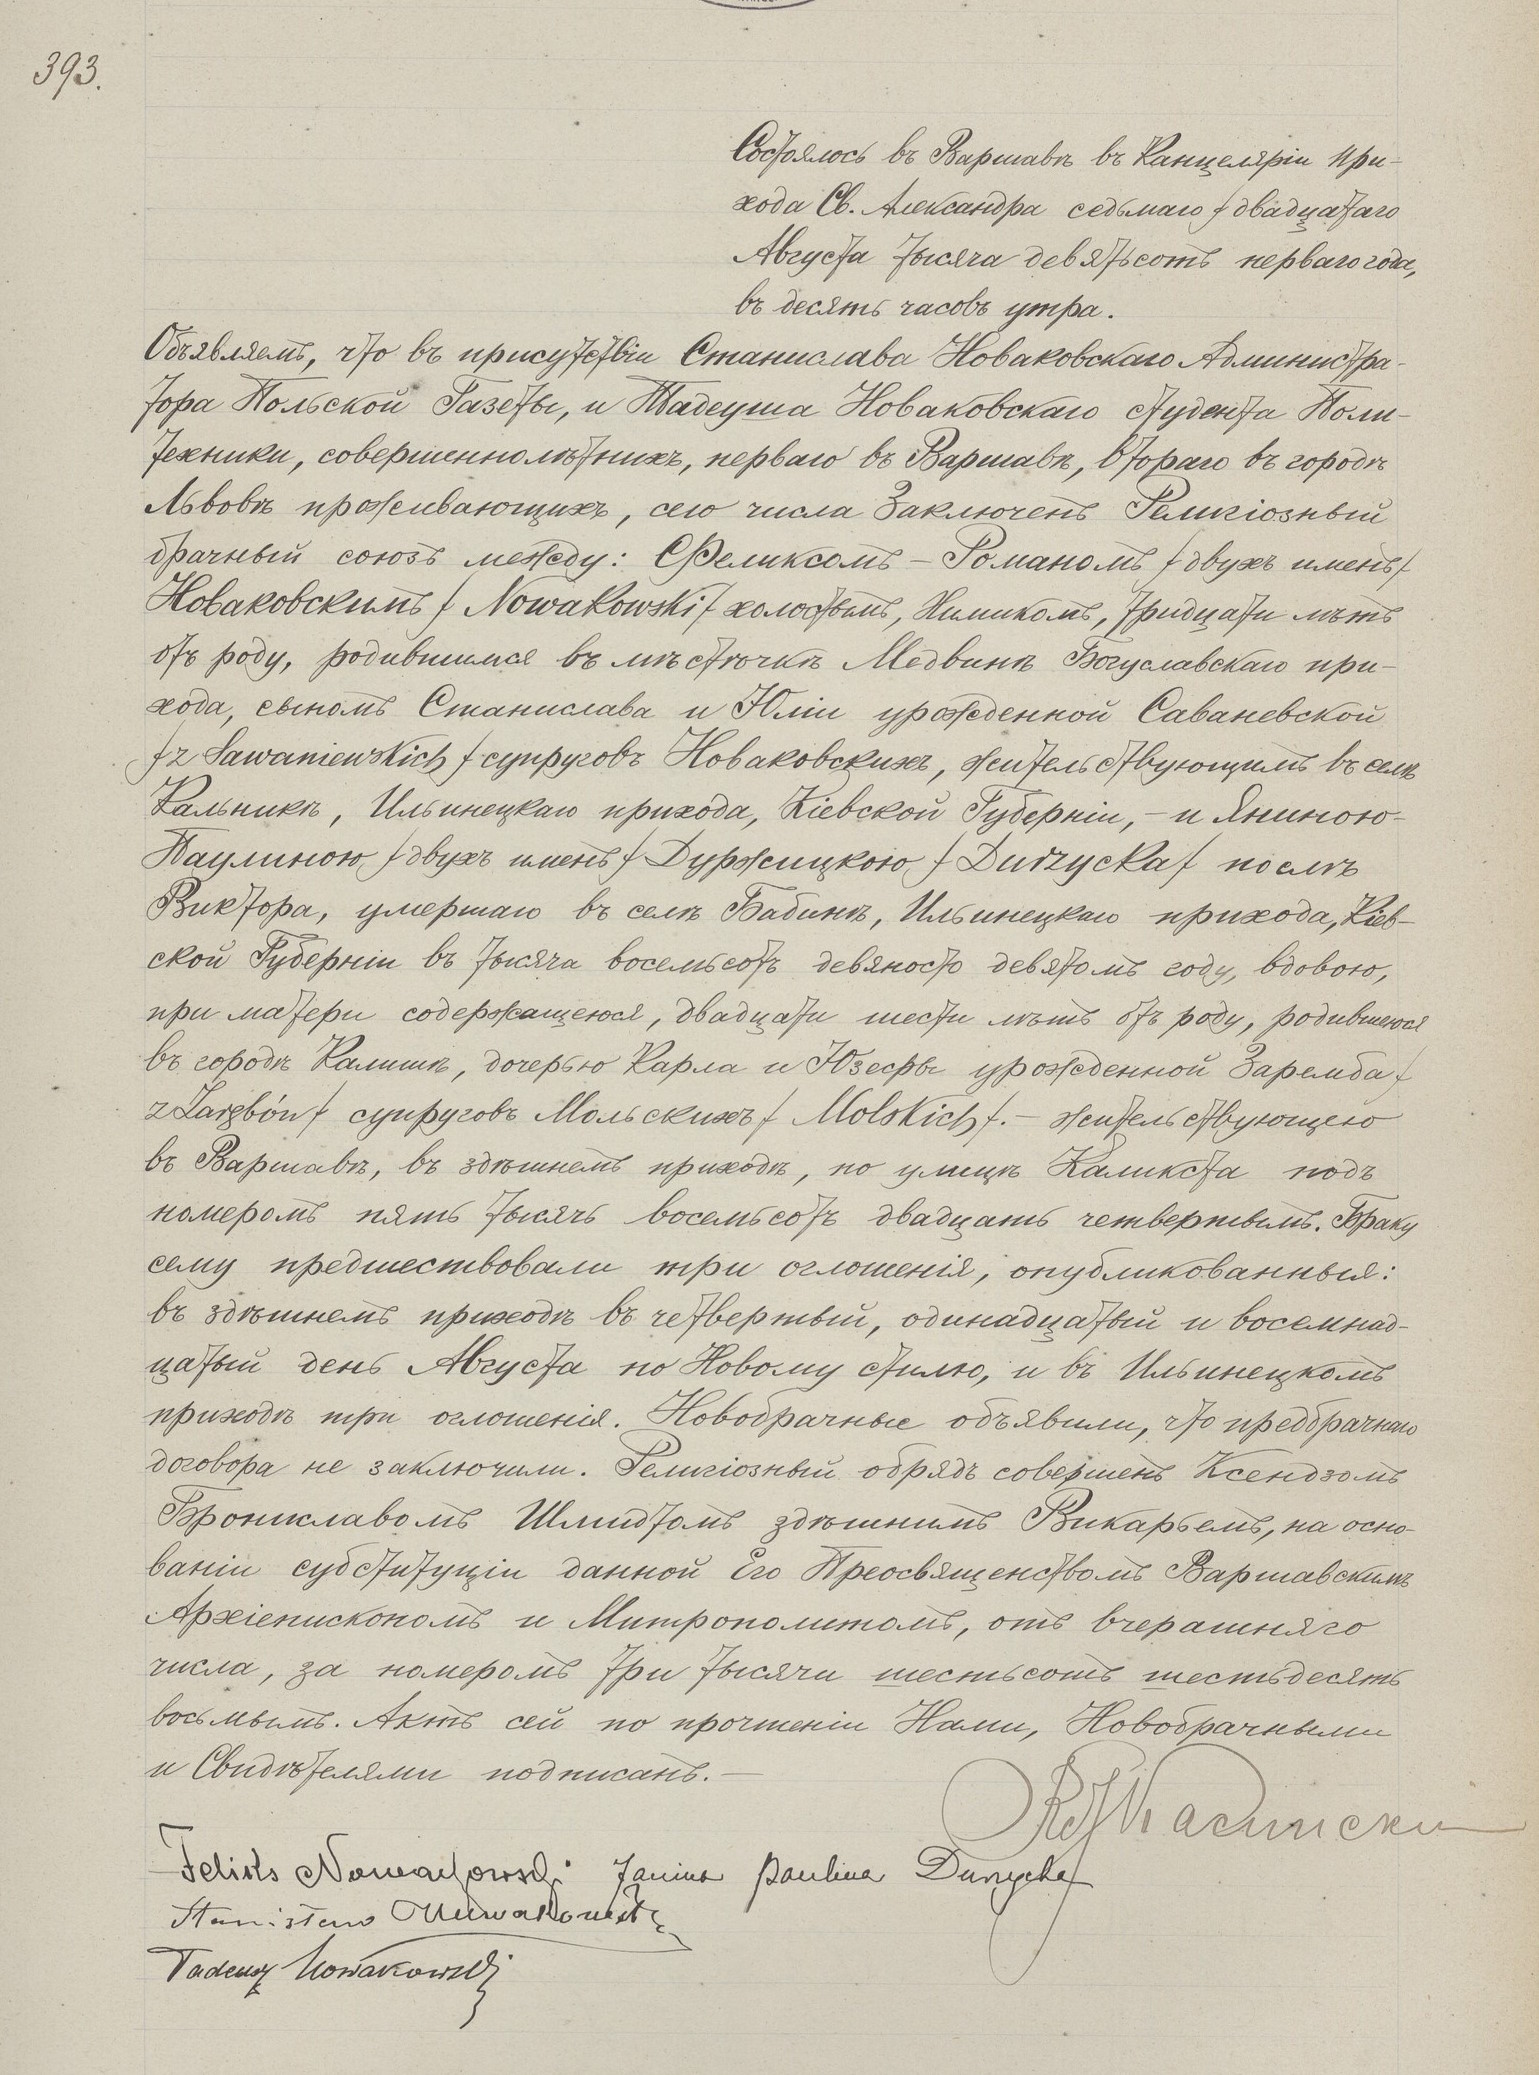 393.
Состоялось въ Варшавѣ въ Канцеляріи при-
хода Св. Александра седьмаго / двадцатаго
Августа тысяча девятьсотъ перваго года,
въ десять часовъ утра.
Объявляемъ, что въ присутствіи Станислава Новаковскаго Администра-
тора Польской Газеты, и Тадеуша Новаковскаго студента Поли-
техники, совершеннолѣтнихъ, перваго въ Варшавѣ, втораго въ городѣ
Львовѣ проживающихъ, сего числа заключенъ Религіозный
брачный союзъ между: Феликсомъ - Романомъ / двухъ именъ /
Новаковскимъ / Nowakowski / холостымъ, Химикомъ, тридцати лѣтъ
отъ роду, родившимся въ мѣстечкѣ Медвинѣ Богуславскаго при-
хода, сыномъ Станислава и Юліи урожденной Саваневской
/ z Sawaniewskich / супруговъ Новаковскихъ, жительствующимъ въ селѣ
Кальникѣ, Ильинецкаго прихода, Кіевской Губерніи, - и Яниною-
Паулиною / двухъ именъ / Дуржицкою / Durzycka / послѣ
Виктора, умершаго въ селѣ Бабинѣ, Ильинецкаго прихода, Кіев-
ской Губерніи въ тысяча восемьсотъ девяносто девятомъ году, вдовою,
при матери содержащеюся, двадцати шести лѣтъ отъ роду, родившеюся
въ городѣ Калишѣ, дочерью Карла и Юзефы урожденной Заремба /
z Zarębów / супруговъ Мольскихъ / Molskich /. - жительствующею
въ Варшавѣ, въ здѣшнемъ приходѣ, по улицѣ Каликста подъ
номеромъ пять тысячъ восемьсотъ двадцать четвертымъ. Браку
сему предшествовали три оглошенія, опубликованныя:
въ здѣшнемъ приходѣ въ четвертый, одинадцатый и восемнад-
цатый день Августа по Новому стилю, и въ Ильинецкомъ
приходѣ три оглошенія. Новобрачные объявили, что предбрачнаго
договора не заключили. Религіозный обрядъ совершенъ Ксендзомъ
Брониславомъ Шмидтомъ здѣшнимъ Викарьемъ, на осно-
ваніи субституціи данной Его Преосвященствомъ Варшавскимъ
Архіепископомъ и Митрополитомъ, отъ вчерашняго
числа, за номеромъ три тысячи шестьсотъ шестьдесятъ
восьмымъ. Актъ сей по прочтеніи Нами, Новобрачными
и Свидѣтелями подписанъ. -
Feliks Nowakowski Janina Paulina Durzycka
Stanisław Nowakowski
Tadeusz Nowakowski